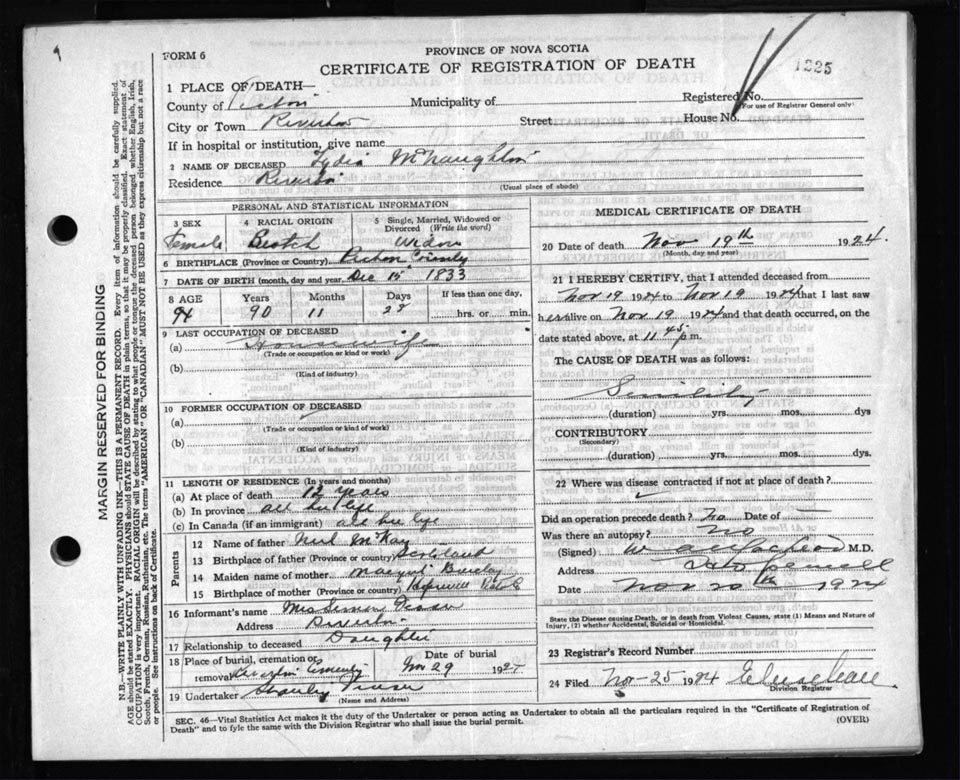 FORM 6
PROVINCE OF NOVA SCOTIA
CERTIFICATE OF REGISTRATION OF DEATH
1225
1 PLACE OF DEATH—
County of Pictou Municipality of
Registered No.
(For use of Registrar General only)
City or Town Riverton Street House No.
If in hospital or institution, give name
2 NAME OF DECEASED Lydia McNaughton
Residence Riverton
(Usual place of abode)
PERSONAL AND STATISTICAL INFORMATION
3 SEX 4 RACIAL ORIGIN 5 Single, Married, Widowed or Divorced (Write the word)
Female Scotch Widow
6 BIRTHPLACE (Province or Country) Pictou County
7 DATE OF BIRTH (month, day and year) Dec 15" 1833
8 AGE Years Months Days If less than one day,
90 11 hrs. or min.
9 LAST OCCUPATION OF DECEASED
(a) Housewife
(Trade or occupation or kind or work)
(b)
(Kind of industry)
10 FORMER OCCUPATION OF DECEASED
(a)
(Trade or occupation or kind or work)
(b)
(Kind of industry)
11 LENGTH OF RESIDENCE (In years and months)
(a) At place of death 12 years
(b) In province all her life
(c) In Canada (if an immigrant) all her life
Parents
12 Name of father McKay
13 Birthplace of father (Province or country) Scotland
14 Maiden name of mother
15 Birthplace of mother (Province or country)
16 Informant's name Mrs Simon Fraser
Address Riverton
17 Relationship to deceased Daughter
18 Place of burial, cremation or removal Date of burial
Riverton Cemetery Nov 29 192
19 Undertaker Stanley Fraser
(Name and Address)
MEDICAL CERTIFICATE OF DEATH
20 Date of death Nov 19th 1924.
(Month, day and year)
21 I HEREBY CERTIFY, that I attended deceased from
Nov 19 1924 to Nov 19 1924 that I last saw
her alive on Nov 19 1924 and that death occurred, on the
date stated above, at 11 45 p m.
The CAUSE OF DEATH was as follows:
Senility
(duration) yrs. mos. dys
CONTRIBUTORY
(Secondary)
(duration) yrs. mos. dys.
22 Where was disease contracted if not at place of death?
Did an operation precede death? No Date of —
Was there an autopsy? No
(Signed) M.D.
Address Hopewell
Date Nov 20th 1924
State the Disease causing Death, or in death from Violent Causes, state (1) Means and Nature of
Injury, (2) whether Accidental, Suicidal or Homicidal.
23 Registrar's Record Number
24 Filed Nov-25 1924
Division Registrar
SEC. 46—Vital Statistics Act makes it the duty of the Undertaker or person acting as Undertaker to obtain all the particulars required in the "Certificate of Registration of
Death" and to fyle the same with the Division Registrar who shall issue the burial permit.
(OVER)
MARGIN RESERVED FOR BINDING
N.B.—WRITE PLAINLY WITH UNFADING INK—THIS IS A PERMANENT RECORD. Every item of information should be carefully supplied.
AGE should be stated EXACTLY. PHYSICIANS should STATE CAUSE OF DEATH in plain terms, so that it may be properly classified. Exact statement of
OCCUPATION is very important. RACIAL ORIGIN will be described by stating to what people or tongue the deceased person belonged whether English, Irish,
Scotch, French, German, Russian, Ruthenian, etc. The terms "AMERICAN" OR "CANADIAN" MUST NOT BE USED as they express citizenship but not a race
or people. See instructions on back of Certificate.